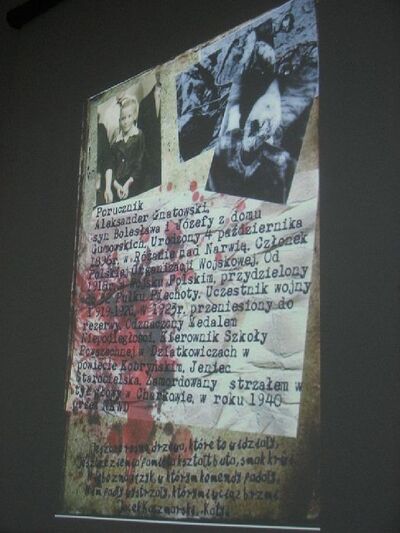 Porucznik
Aleksander Gnatowski,
syn Bolesława i Józefy z domu
Gumowskich. Urodzony 4 października
1896r. w Różanie nad Narwią. Członek
Polskiej Organizacji Wojskowej. Od
1918r. w Wojsku Polskim, przydzielony
do Pułku Piechoty. Uczestnik wojny
1919-1920, w 1923r. przeniesiony do
rezerwy. Odznaczony Medalem
Niepodległości. Kierownik Szkoły
Powszechnej w Dziatkowiczach w
powiecie Kobryńskim. Jeniec
Starobielska. Zamordowany strzałem w
tył głowy w Charkowie, w roku 1940
przez NKWD
Jeszcze rosną drzewa, które to widziały,
Jeszcze ziemia pamięta kształt buta, smak krwi.
Niebo zna język, w którym komendy padały,
Nim padły wystrzały, którymi wciąż brzmi.
Jacek Kaczmarski, Katyń